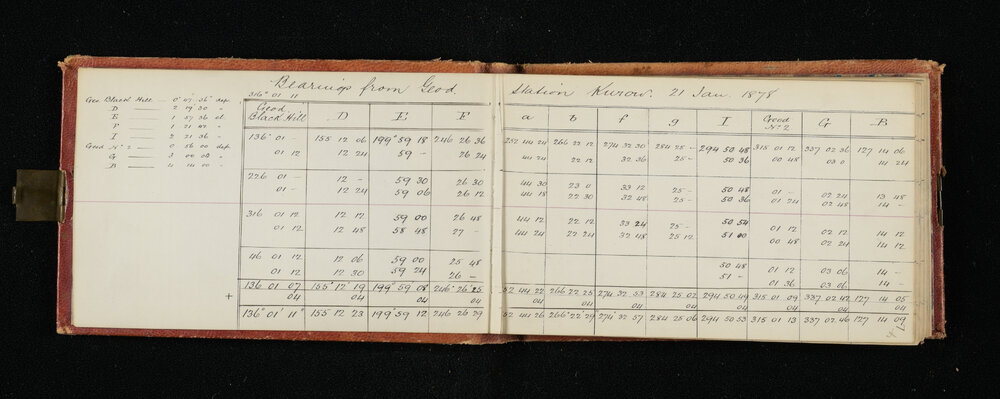 Bearings from Geod Station Kurow. 21 Jan. 1878
316° 01 11
Geo. Black Hill — 0° 07' 36" dep.
D — 2 19 30 "
E — 1 57 36 el.
F — 1 21 "
I — 2 21 36 "
Geod No 2 — 0 56 00 dep.
G — 3 00 "
B — 00 "
Geod Black Hill D E F a b f g I Geod No. 2 G B
136° 01 — 155 12 06 199° 59 18 246 26 36 252 44 24 266 22 12 274 32 30 284 25 — 294 50 48 315 01 12 337 02 36 127 14 06
01 12 12 24 59 — 26 24 44 24 22 12 32 36 25 — 50 36 00 48 03 0 14 24
226 01 — 12 — 59 30 26 30 44 30 23 0 33 12 25 — 50 48 01 — 02 24 13 48
01 — 12 24 59 06 26 12 44 18 22 30 32 48 25 — 50 36 01 24 02 48 14 —
316 01 12 12 12 59 00 26 48 44 12 22 12 33 24 25 — 50 54 01 12 02 12 14 12
01 12 12 48 58 48 27 — 44 24 22 24 32 48 25 12 51 00 00 48 02 24 14 12
46 01 12 12 06 59 00 25 48 50 48 01 12 03 06 14 —
01 12 12 30 59 24 26 — 51 — 01 36 03 06 14 —
136 01 07 155° 12 19 199° 59 08 246° 26 25 52 44 22 266 22 25 274 32 53 284 25 02 294 50 49 315 01 09 337 02 42 127 14 05
+ 04 04 04 04 04 04 04 04 04 04 04 04
136° 01' 11" 155 12 23 199° 59 12 246 26 29 52 44 26 266° 22' 29 274 32 57 284 25 06 294 50 53 315 01 13 337 02 46 127 14 09